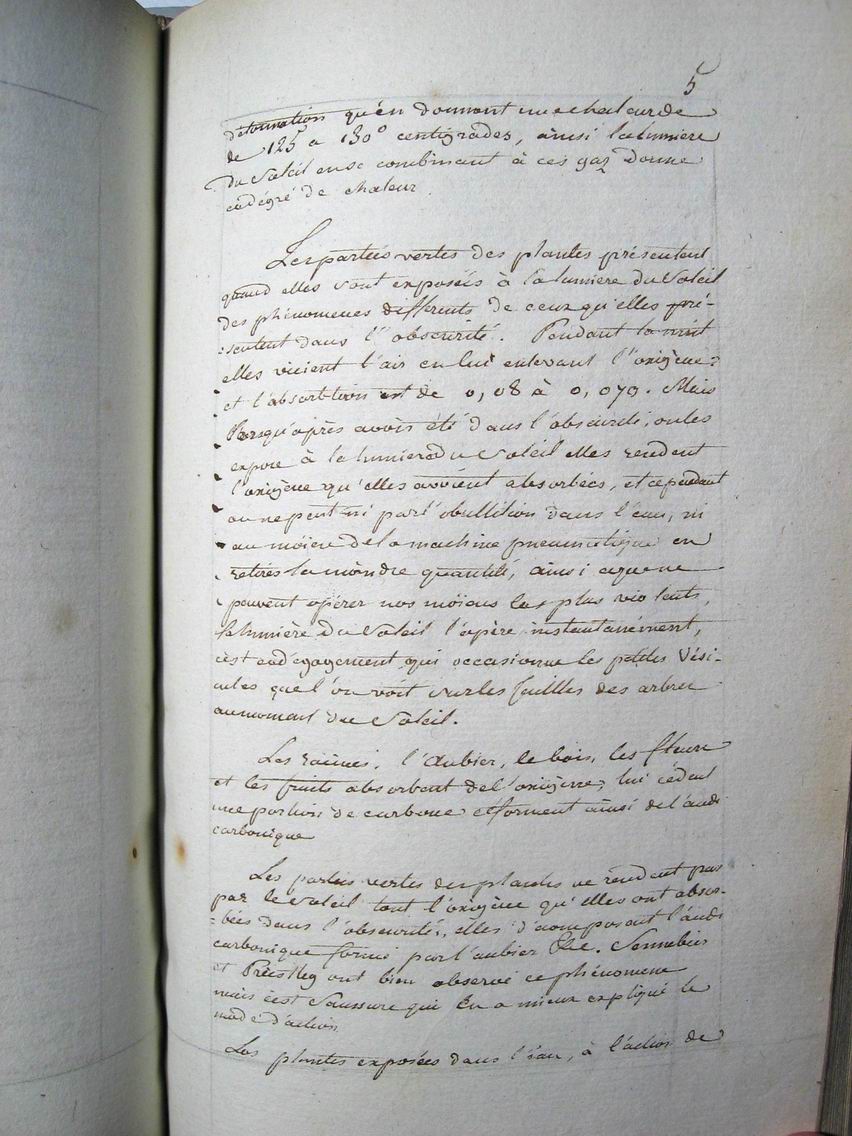 5
détonnation qu'en donnant une chaleur de
de 125 a 130° centigrades, ainsi la lumiere
du Soleil en se combinant à ces gaz donne
ce dégré de chaleur.
Les parties vertes des plantes présentent
quand elles sont exposées à la lumiere du Soleil
des phénomenes differents de ceux qu'elles pré-
-sentent dans l'obscurité. Pendant la nuit
elles vicient l'air en lui enlevant l'oxigène;
et l'absorbtion est de 0,08 à 0,079. Mais
lorsqu'après avoir été dans l'obscurité, on les
expose à la lumiere du Soleil elles rendent
l'oxigène qu'elles avoient absorbées, et cependant
on ne peut ni par l'ébullition dans l'eau, ni
au moïen de la machine pneumatique en
retirer la moindre quantité, ainsi ce que ne
peuvent opérer nos moïens les plus violents,
la lumière du Soleil l'opère instantanément,
c'est ce dégagement qui occasionne les petites vési-
cules que l'on voit sur les feuilles des arbres
au moment du Soleil.
Les racines, l'Aubier, le bois, les fleurs
et les fruits absorbent de l'oxigène, lui cèdent
une portion de carbone et forment ainsi de l'acide
carbonique
Les parties vertes des plantes ne rendent pas
par le Soleil tout l'oxigène qu'elles ont absor-
-bées dans l'obscurité, elles décomposent l'acide
carbonique formé par l'aubier &c. Sennebier
et Priestley ont bien observé ce phénomene
mais c'est Saussure qui en a mieux expliqué le
mode d'action
Les plantes exposées dans l'eau, à l'action de